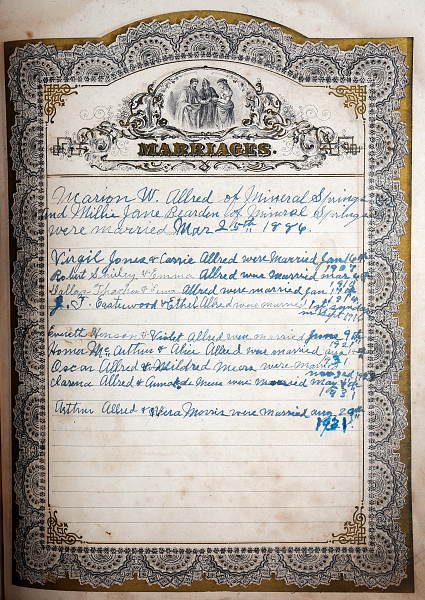 MARRIAGES.
Marion W. Allred of Mineral Springs
and Millie Jane Bearden of Mineral Springs
were married Mar 25th 1886.
Virgil Jones & Carrie Allred were Married Jan 16th
1907
Robert & Emma Allred were married mar
& Allred were married Jan
1914
J. T. Eastwood & Ethel Allred were married 1st Sunday
in Sept
Everett Henson & Violet Allred were married June 9th
1921
Homer Mc Arthur & Alice Allred was married aug
Oscar Allred & Mildred Mears were married
Clarence Allred & Mears were married may
Arthur Allred & Vera Morris were married aug 29th
1921